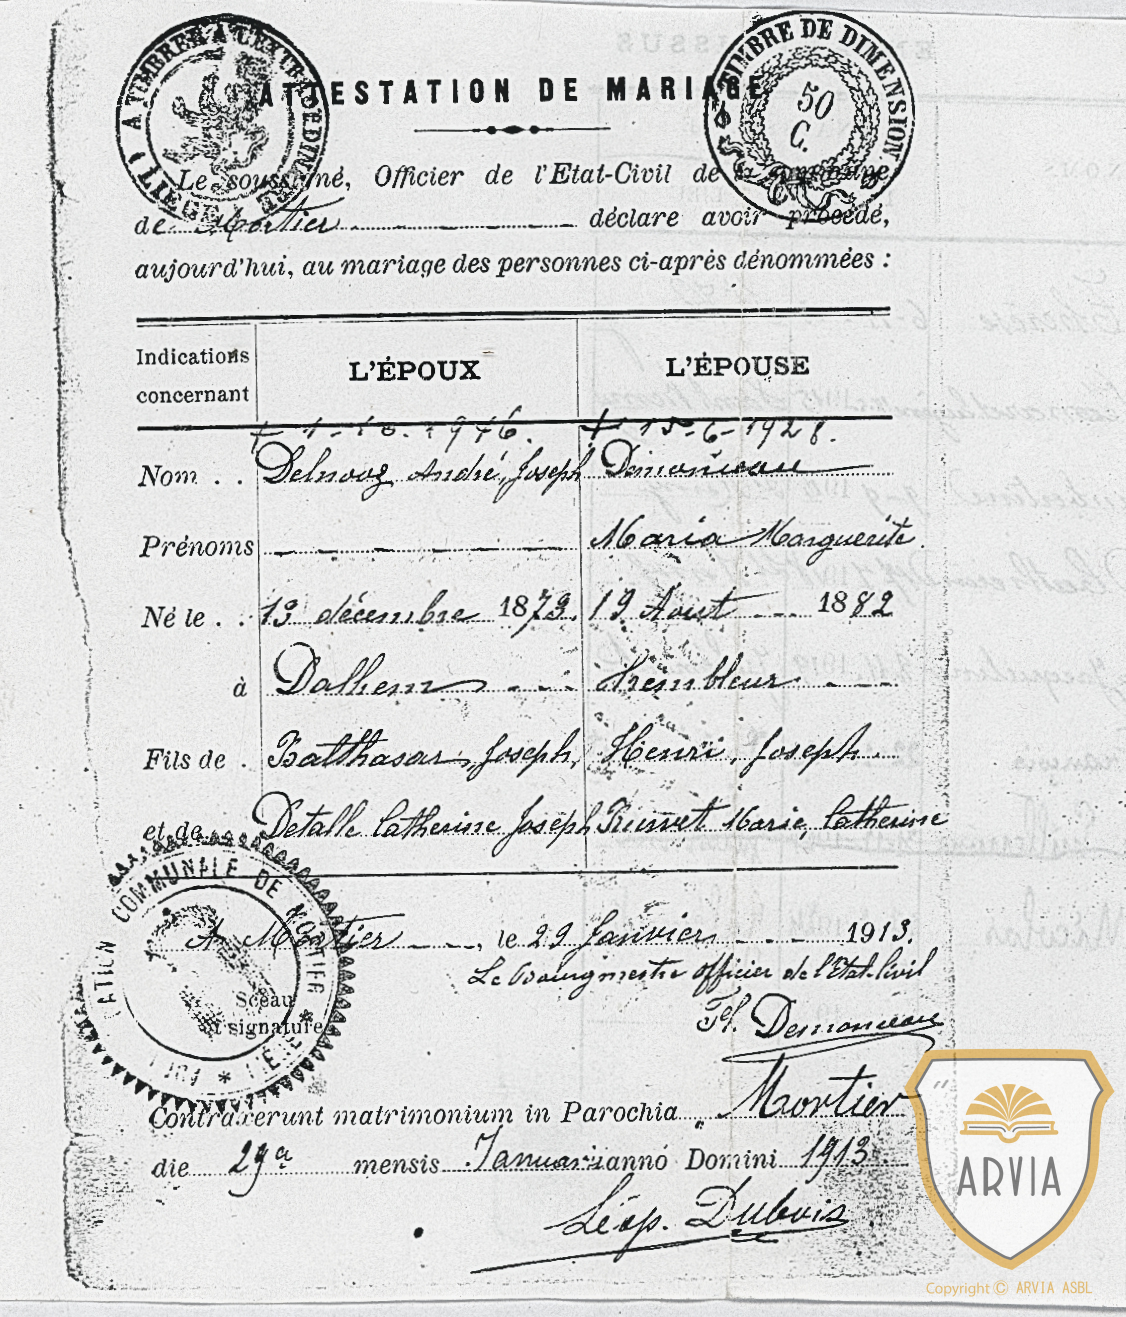 A TIMBRER A L'EXTRAORDINAIRE ( LIEGE )
TIMBRE DE DIMENSION.
50
C.
ATTESTATION DE MARIAGE
Le soussigné, Officier de l'Etat-Civil de la commune
de Mortier déclare avoir procédé,
aujourd'hui, au mariage des personnes ci-après dénommées :
Indications concernant L'ÉPOUX L'ÉPOUSE
+ 1-10.1946. + 15-6-1928.
Nom . . Delnooz, André, Joseph Demonceau
Prénoms Maria Marguerite
Né le . . 13 décembre 1873. 19 Aout 1882
à Dalhem Trembleur
Fils de . Balthasar, Joseph, Henri, Joseph
et de Detalle Catherine Joseph Marie, Catherine
ATION COMMUNALE DE MORTIER * LIÉGE *
A Mortier, le 29 Janvier 1913.
Le Bourgmestre officier de l'Etat-Civil
Sceau
et signature
Demonceau
Contraxerunt matrimonium in Parochia Mortier
die 29a mensis Januarii anno Domini 1913
Léop. Dubois
ARVIA
Copyright © ARVIA ASBL